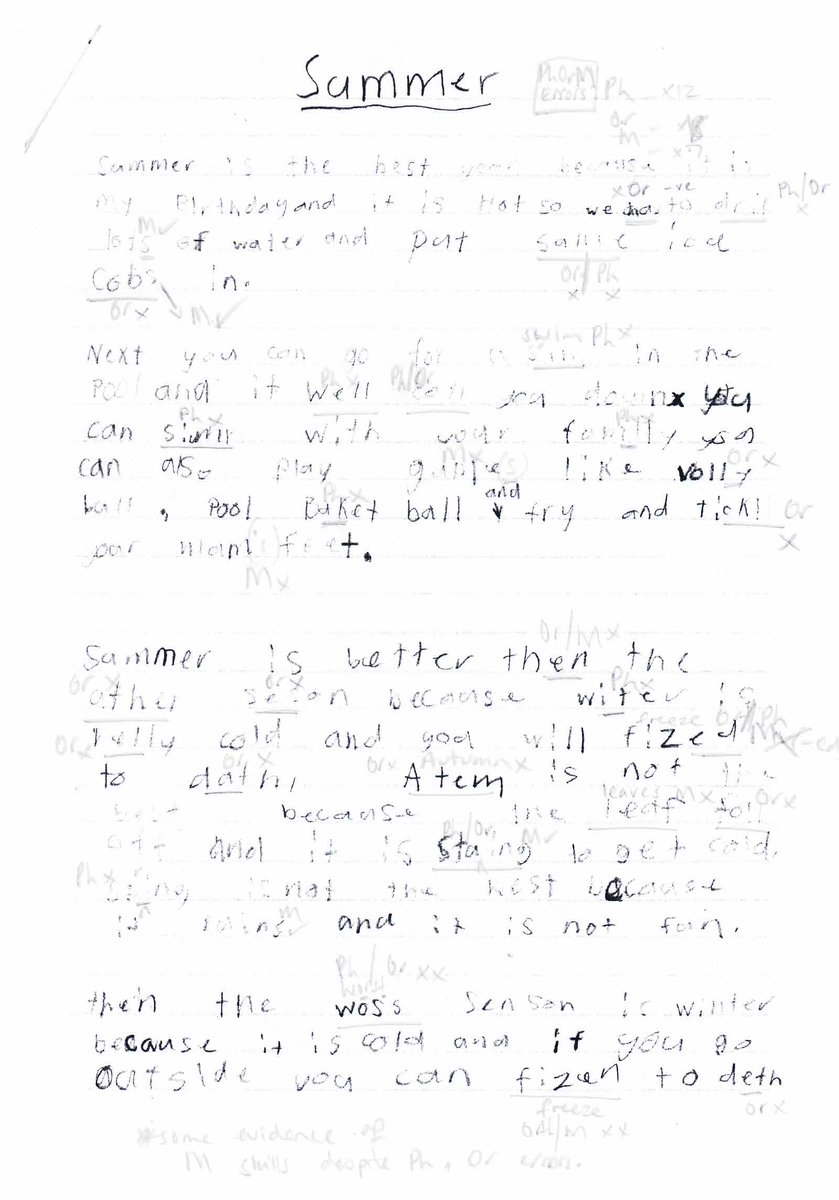 Summer
Ph Or M
Errors
Ph x12
Or
M
Summer is the best year because it is
x Or -ve
Ph/Or
x
my Birthday and it is Hot so we to
M✓
lots of water and put ice
Or/Ph
x x
Cobs in.
Or x
M✓
swim Ph x
Next you can go for a in the
Ph/Or
Pool and it well you down x you
Ph x
Ph x
can simm with your familly you
M x
Or x
can also play game(s) like volly
Ph x
and
ball, Pool Baket ball try and tickl
Or
x
your mam(s) feet.
M x
Or/M x
Summer is better then the
Or x
Or x
Ph x
ather seson because witer is
freeze Or/Ph
Or x
relly cold and you will fized
Or x
Or x Autumn x
to dath, Atem is not the
leaves M x
Or x
best because the leaf foll
Ph/Or
M✓
off and it is staing to get cold.
Ph x
is not the best because
M
it rains and it is not fun.
Ph/Or xx
worst
then the woss senson is winter
because it is cold and if you go
outside you can fizen to deth
freeze
Or x
Or/M xx
*some evidence of
M skills despite Ph + Or errors.